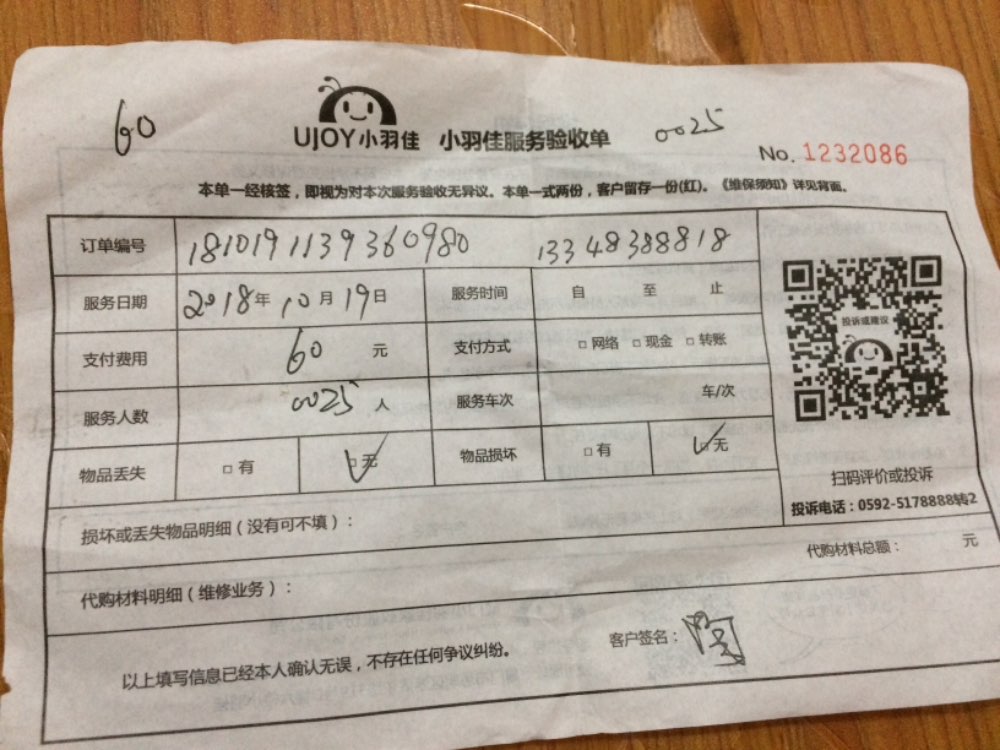 60
UJOY小羽佳 小羽佳服务验收单 0025
No. 1232086
本单一经核签，即视为对本次服务验收无异议。本单一式两份，客户留存一份(红)。《维保须知》详见背面。
订单编号 1810191139360980 13348388818
服务日期 2018年10月19日 服务时间 自 至 止
支付费用 60 元 支付方式 □网络 □现金 □转账
服务人数 0025 人 服务车次 车/次
物品丢失 □有 ☑无 物品损坏 □有 ☑无
投诉或建议
扫码评价或投诉
投诉电话：0592-5178888转2
损坏或丢失物品明细（没有可不填）：
代购材料明细（维修业务）： 代购材料总额： 元
以上填写信息已经本人确认无误，不存在任何争议纠纷。 客户签名：